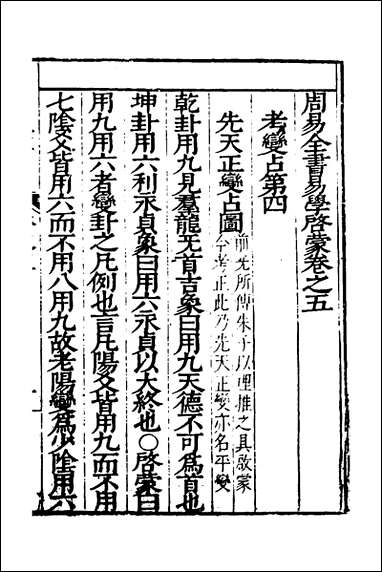 周易全書易學啓蒙卷之五
考變占第四
先天正變占圖
前无所傳朱子以理推之具啟蒙
今考正此乃先天正變亦名平變
乾卦用九見羣龍无首吉象曰用九天德不可為首也
坤卦用六利永貞象曰用六永貞以大終也〇啓蒙曰
用九用六者變卦之凡例也言凡陽爻皆用九而不用
七陰爻皆用六而不用八用九故老陽變爲少陰用六